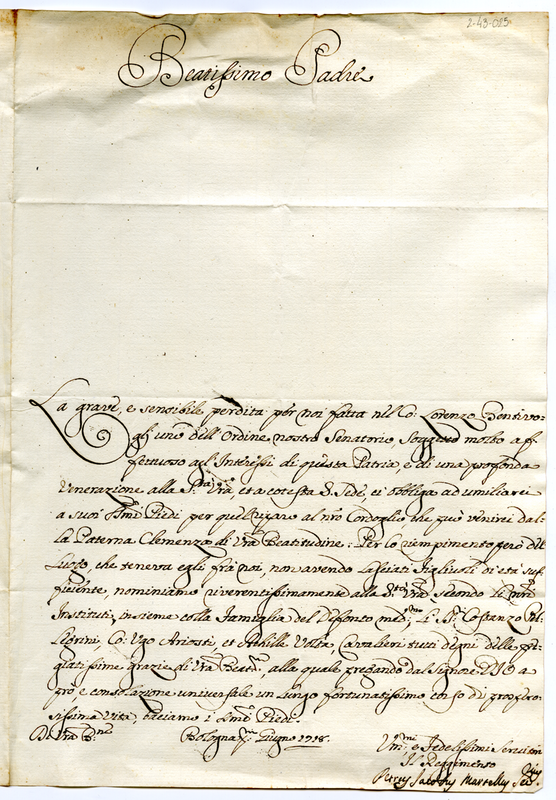 2-43-025
Beatissimo Padre
La grave, e sensibile perdita per noi fatta nel Co: Lorenzo Bentivo-
glj uno dell'Ordine nostro Senatorio, Soggetto molto af-
fettuoso agl'Interessi di questa Patria, e di una profonda
venerazione alla S.tà Vrã, et a cotesta S. Sede, ci obbliga ad umiliarci
a suoi Smi Piedi per quel riparo al nrõ Cordoglio che può venirci dal-
la Paterna Clemenza di Vrã Beatitudine: Per lo riempimento però del
Luogo, che teneva egli frà noi, non avendo lasciati Figliuoli di età suf-
ficiente, nominiamo riverentissimamente alla S.tà Vrã secondo li nrĩ
Instituti, insieme colla Famiglia del Defonto med.mo li SS.ri Costanzo
Co: Ugo Ariosti, et Achille Volta, Cavalieri tutti degni delle pre-
giatissime grazie di Vrã Beat.ne, alla quale pregando dal Signore DIO a
prò e consolazione universale un lungo fortunatissimo corso di prospero-
sissima vita, baciamo i Smi Piedi.
Di Vrã B.ne Bologna Giugno 1718.
Um.mi e Fedelissimi Servitori
Il Reggimento
Martelly Sec.